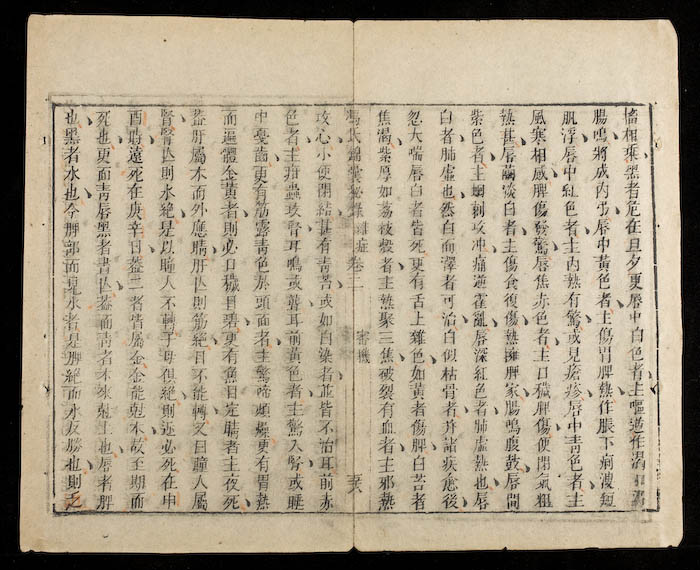 惱相乘黑者危在旦夕更唇中白色者主嘔逆作渴
腸鳴將成内弔唇中黃色者主傷胃脾熱作脹下痢波短
肌浮唇中紅色者主内熱有驚或見瘡疹唇中靑色者主
風寒相感脾傷發驚唇焦赤色者主口穢脾傷便閉氣粗
熱甚唇繭白者主傷食復傷熱擁脾家腸鳴腹鼓唇間
紫色者主蚘刺攻冲痛逆霍亂唇深紅色者肺虛熱也唇
白者肺虛也然白而澤者可治白似枯骨者諸疾愈後
忽大喘唇白者皆死更有舌上雜色如黃者傷脾白苔者
焦渴紫厚如荔枝殼者主熱聚三焦破裂有血者主邪熱
馮氏錦囊秘錄 雜症卷二 審機
攻心小便閉結甚有靑苔或如白染者並皆不治耳前赤
色者主疳蟲攻腎耳鳴或聾耳前黃色者主驚入腎或睡
中戛齒更有筋露靑色於頭面者主驚啼煩燥更有胃熱
而遍體金黃者則必口穢目碧更有魚目定睛者主夜死
葢肝屬木而外應睛肝亾則筋絕目不能轉又目瞳人屬
腎腎亾則水絕是以瞳人不轉子母俱絕則近必死在申
酉時遠死在庚辛日葢二者皆屬金金能尅木故至期而
死也更面靑唇黑者亾葢面靑者木來尅土也唇者脾
也黑者水也今脾部而見水者是脾絕而水反勝也則